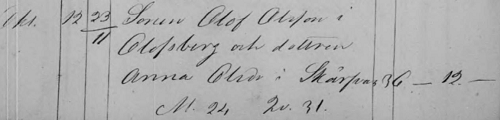 Okt. 12 23/11 Sonen Olof Olsson i
Olofsberg och dottren
Anna Olsdr i Skärpan 36 — 12 —
M. 24 Qv. 31.